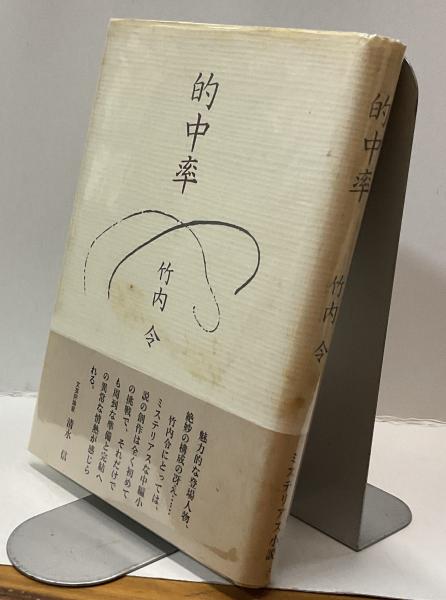 的中率
竹内 令
魅力的な登場人物、
絶妙の構成の冴え……
竹内令にとっては、
ミステリアスな中編小
説の創作は全く初めて
の挑戦で、それだけで
も周到な準備と完結へ
の異常な情熱が感じら
れる。
文芸評論家 清水 信
的中率
竹内 令
ミステリアス小説